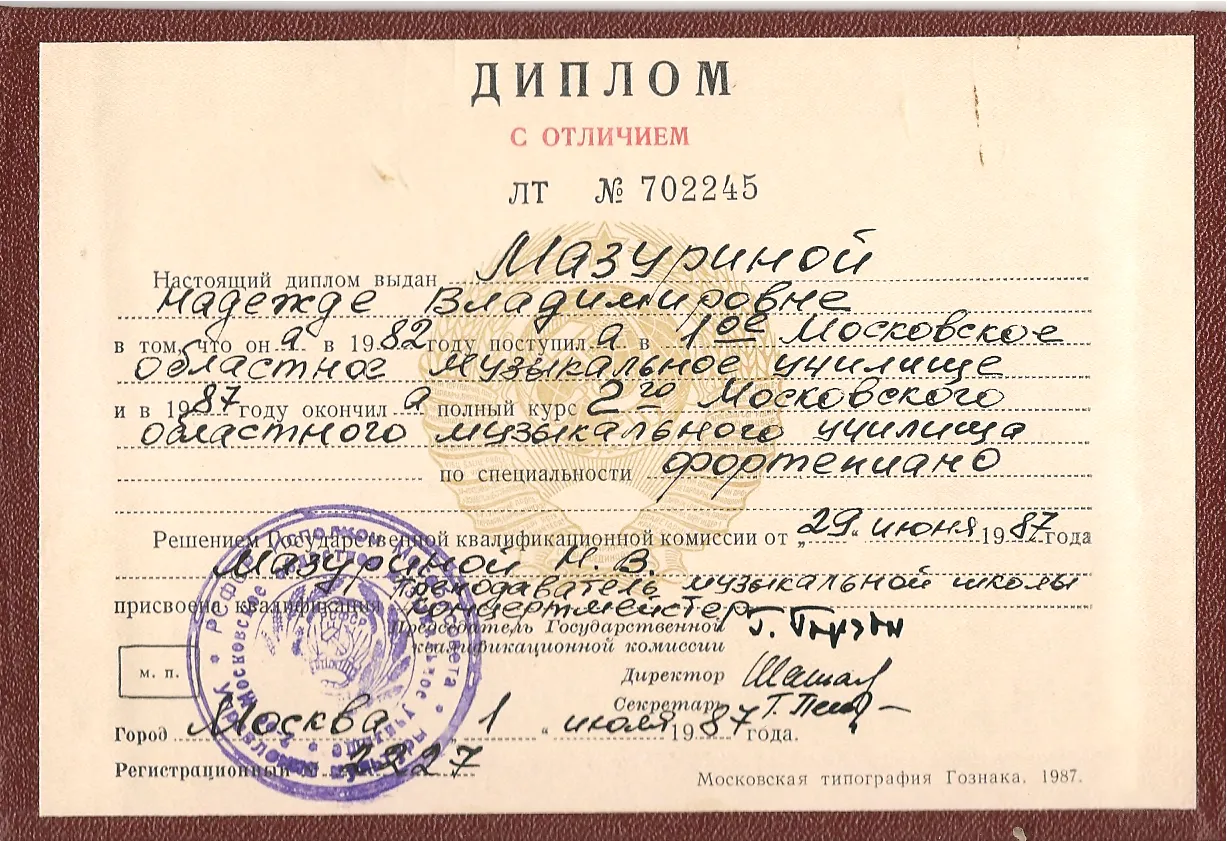 ДИПЛОМ
С ОТЛИЧИЕМ
ЛТ № 702245
Настоящий диплом выдан Мазуриной
Надежде Владимировне
в том, что он а в 1982 году поступил а в 1ое Московское
областное музыкальное училище
и в 1987 году окончил а полный курс 2го Московского
областного музыкального училища
по специальности фортепиано
Решением Государственной квалификационной комиссии от „29“ июня 1987 года
Мазуриной Н. В.
преподаватель музыкальной школы
присвоена квалификация концертмейстер
Председатель Государственной
квалификационной комиссии
Директор
Секретарь
м. п.
Город Москва 1 “ июля 1987 года.
Регистрационный 2227
Московская типография Гознака. 1987.